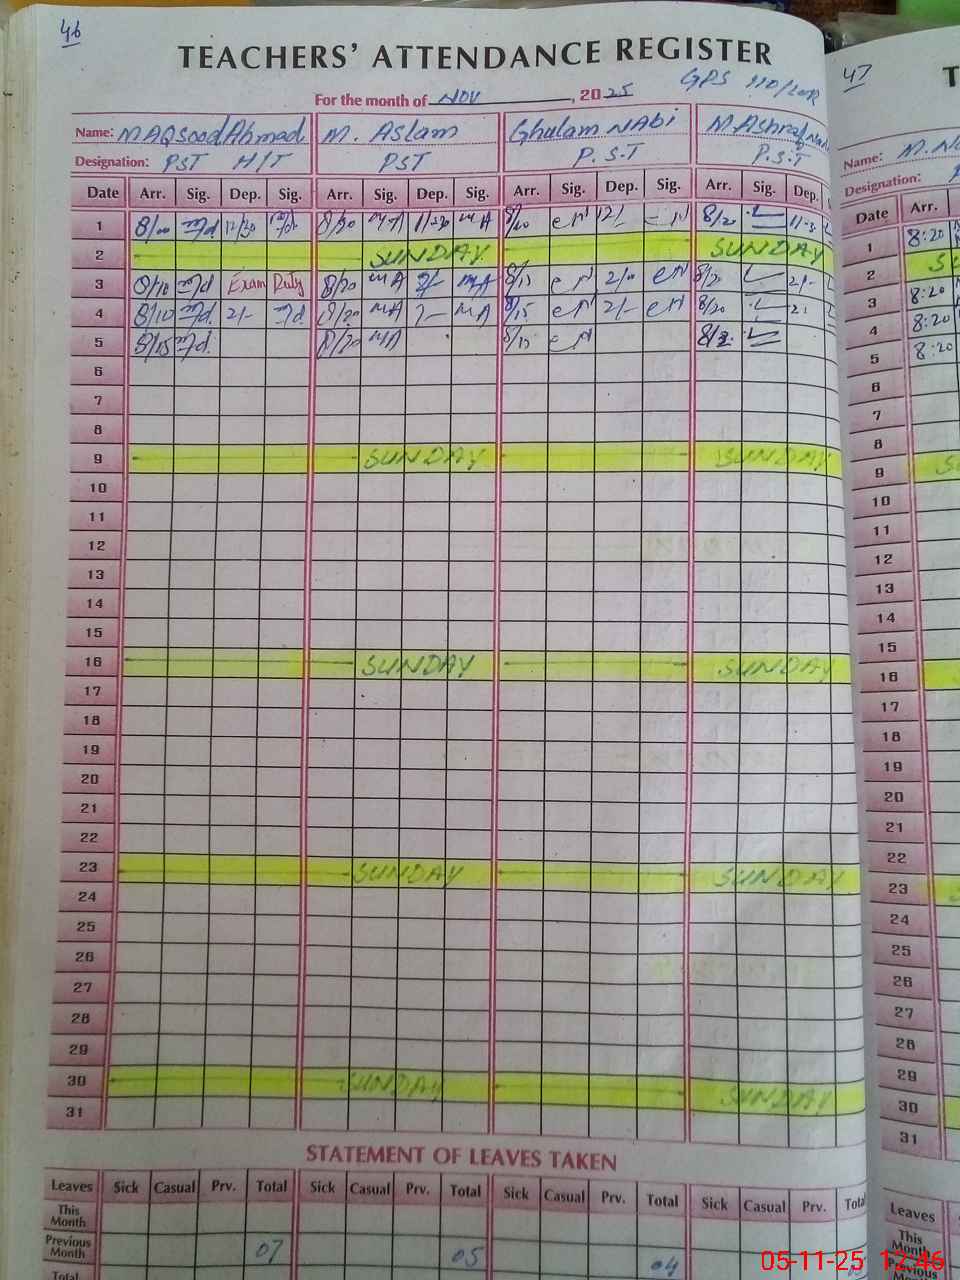 46
TEACHERS' ATTENDANCE REGISTER
For the month of NOV, 2025
GPS 110/
Name: MAQSood Ahmad M. Aslam Ghulam NAbi M Ashraf
Designation: PST H/T PST P.S.T P.S.T
Date Arr. Sig. Dep. Sig. Arr. Sig. Dep. Sig. Arr. Sig. Dep. Sig. Arr. Sig. Dep.
1 8/00 12/30 8/20 MA 11/30 MA 8/20 12/- 8/20
2 SUNDAY SUNDAY
3 8/10 Exam Duty 8/20 MA 2/- MA 8/15 2/- 8/20 2/-
4 8/10 2/- 8/20 MA MA 8/15 2/- 8/20
5 8/15 8/20 MA 8/15
6
7
8
9 SUNDAY SUNDAY
10
11
12
13
14
15
16 SUNDAY SUNDAY
17
18
19
20
21
22
23 SUNDAY SUNDAY
24
25
26
27
28
29
30 SUNDAY SUNDAY
31
STATEMENT OF LEAVES TAKEN
Leaves Sick Casual Prv. Total Sick Casual Prv. Total Sick Casual Prv. Total Sick Casual Prv. Total
This Month
Previous Month 07 05 04
Total
47
T
Name: M.
Designation:
Date Arr.
1 8:20
2
3 8:20
4 8:20
5 8:20
6
7
8
9
10
11
12
13
14
15
16
17
18
19
20
21
22
23
24
25
26
27
28
29
30
31
Leaves
This Month
Previous
05-11-25 12:46